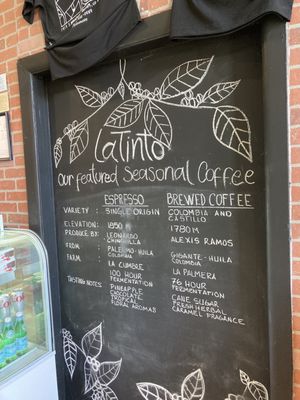 LaTinto
Our featured Seasonal Coffee
ESPRESSO BREWED COFFEE
VARIETY : SINGLE ORIGIN COLOMBIA AND CASTILLO
ELEVATION: 1850 M 1780M
PRODUCE BY: LEONARDO CHINCHILLA ALEXIS RAMOS
FROM : PALERMO-HUILA COLOMBIA GIGANTE-HUILA COLOMBIA
FARM : LA CUMBRE LA PALMERA
100 HOUR FERMENTATION 76 HOUR FERMENTATION
TASTING NOTES PINEAPPLE CHOCOLATE TROPICAL FLORAL AROMAS CANE SUGAR FRESH HERBAL CARAMEL FRAGANCE